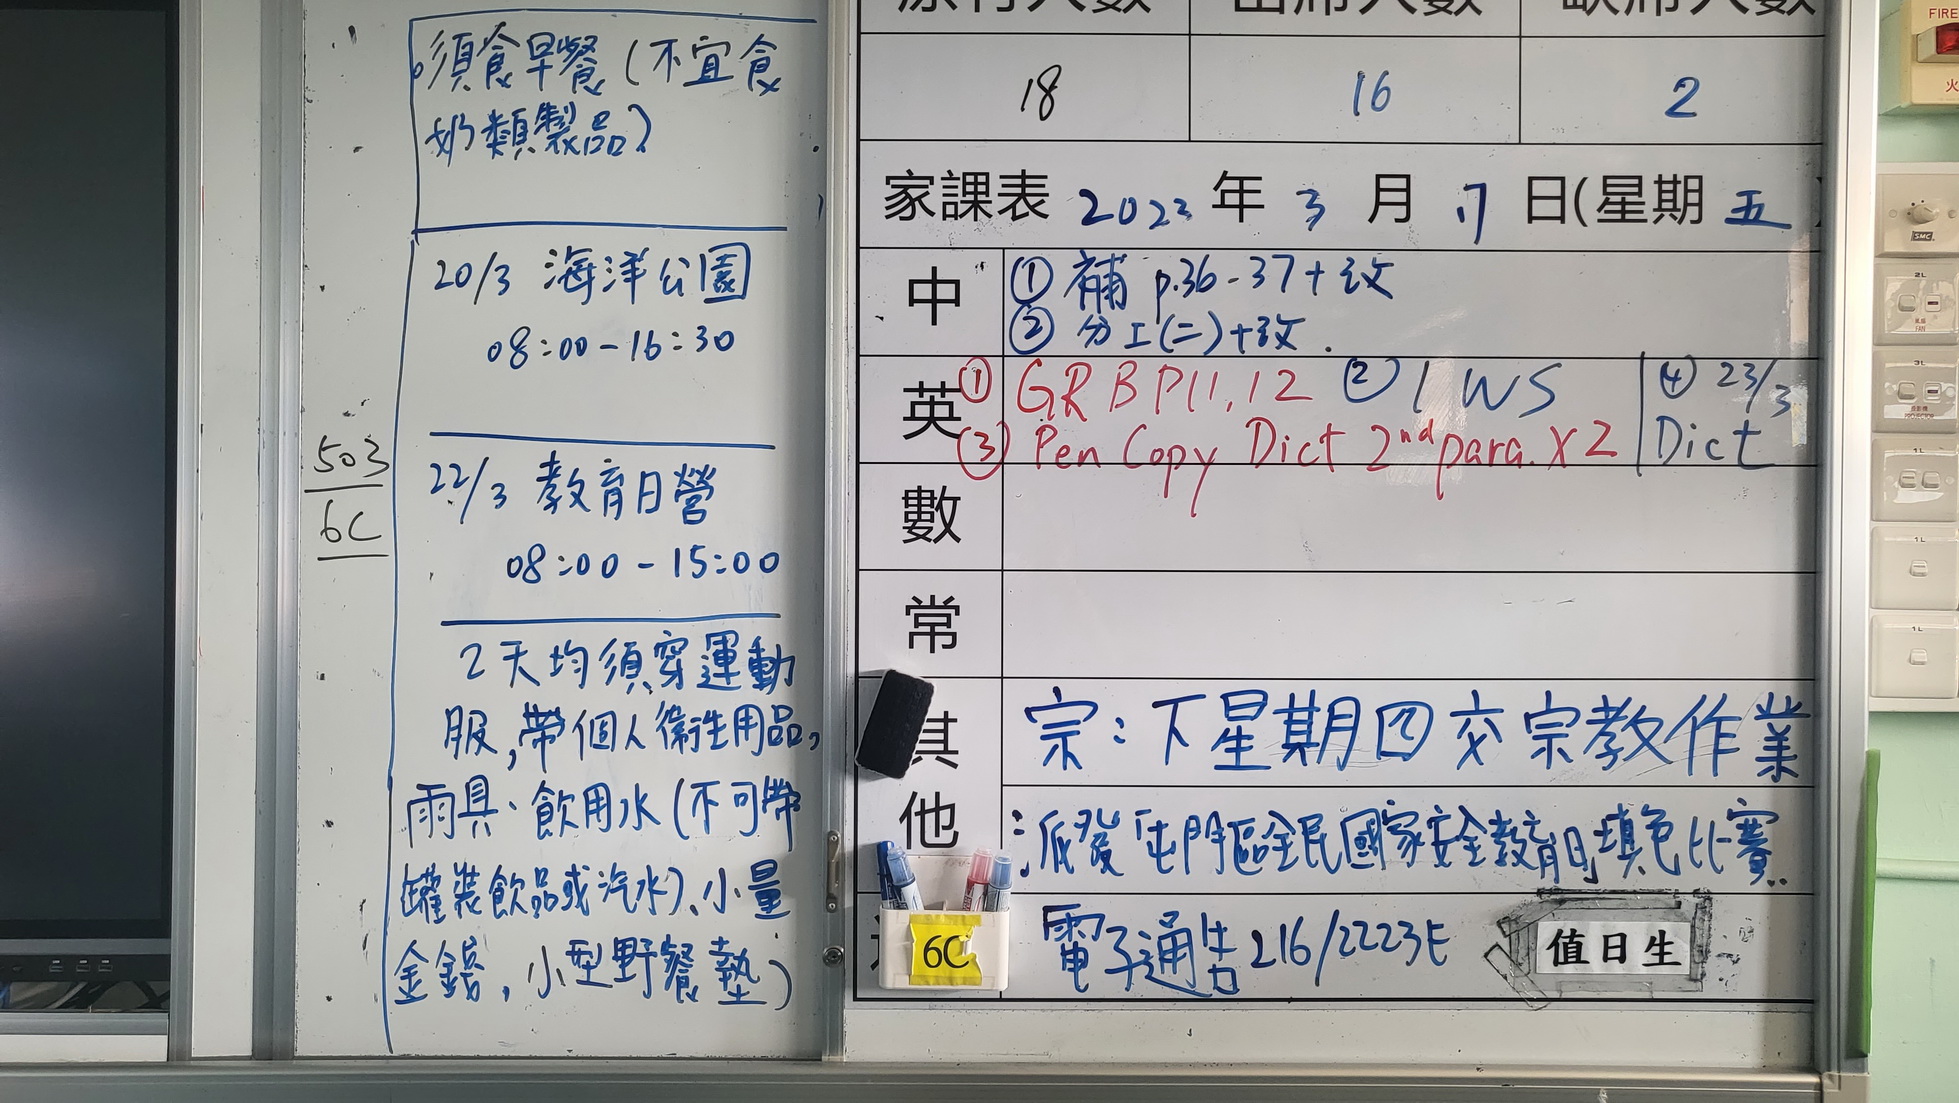 須食早餐(不宜食
奶類製品)
20/3 海洋公園
08:00-16:30
22/3 教育日營
08:00-15:00
2天均須穿運動
服,帶個人衛生用品,
雨具、飲用水(不可帶
罐裝飲品或汽水)、小量
金錢,小型野餐墊)
503
6C
原有人數 出席人數 缺席人數
18 16 2
家課表 2023 年 3 月 17 日(星期 五
中 ① 補 p.36-37+改
② 分工(二)+改.
英 ① GRB P11,12 ② 1 WS ④ 23/3
③ Pen Copy Dict 2nd para. X2 Dict
數
常
其他 宗:下星期四交宗教作業
:派發屯門區全民國家安全教育日填色比賽
電子通告216/2223E
值日生
6C
FIRE
火
SMC
2L
FAN
3L
PROJECTOR
1L
1L
1L